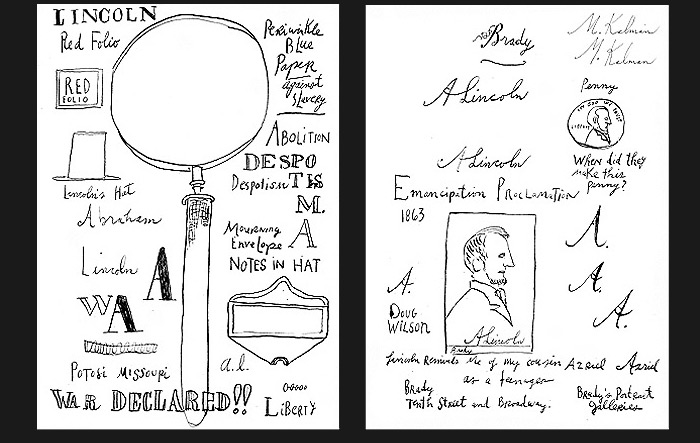 LINCOLN
Red Folio
RED
FOLIO
Lincoln's Hat
Abraham
Lincoln
A
WA
Potosi Missouri
WAR DECLARED!!
Periwinkle
Blue
Paper
against
Slavery
ABOLITION
DESPO
Despotism TIS
M.
Mourning
Envelope
A
NOTES IN HAT
a.l.
LIBERTY
Brady
M. Kalman
M. Kalman
A Lincoln
Penny
IN GOD WE TRUST
LIBERTY
A Lincoln
When did they
make this
penny?
Emancipation Proclamation
1863
A.
A.
A.
A.
Doug
Wilson
A Lincoln
Brady
Lincoln Reminds Me of my cousin Azriel Azriel
as a teenager
Brady
Tenth Street and Broadway.
Brady's Portrait
galleries